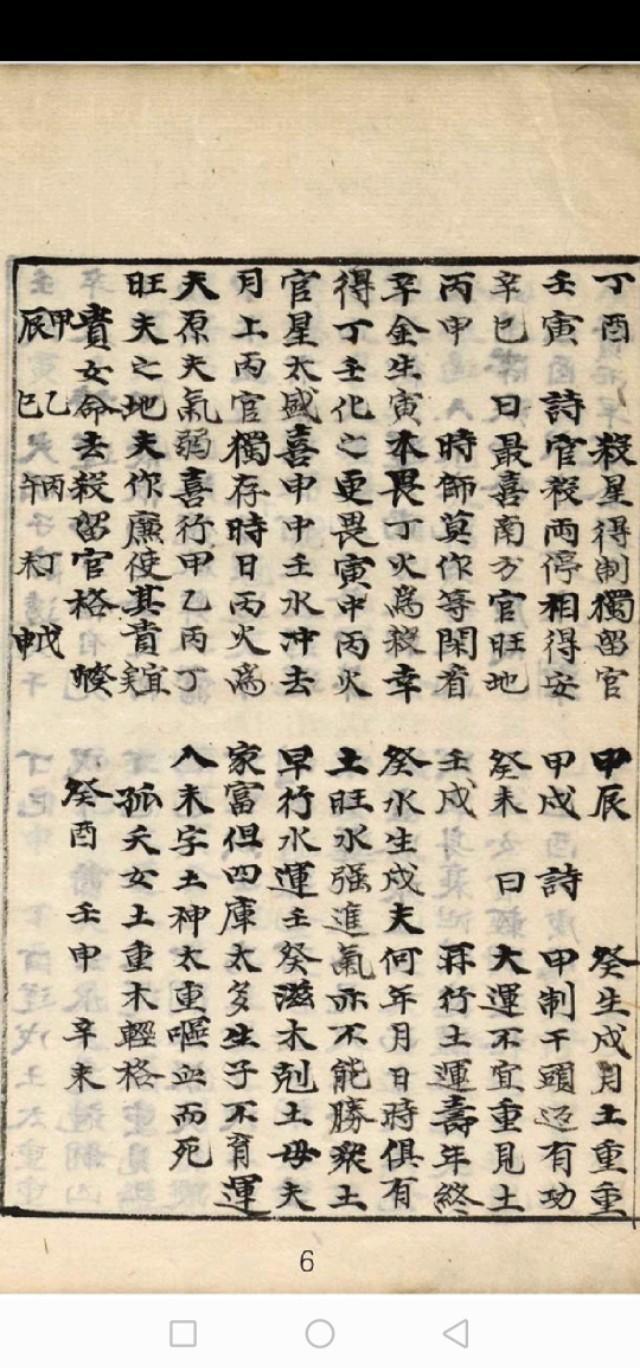 丁酉 殺星得制獨留官
壬寅 詩官殺兩停相得安
辛巳 曰最喜南方官旺地
丙申 時師莫作等閑看
辛金生寅本畏丁火為殺幸
得丁壬化之更畏寅中丙火
官星太盛喜申中壬水冲去
月上丙官獨存時日丙火為
夫原夫氣弱喜行甲乙丙丁
旺夫之地夫作廉使其貴
貴女命去殺留官格
甲辰 乙巳 丙午 丁未 戊申
甲辰 癸生戌月土重重
甲戌 詩 甲制干頭有功
癸未 曰 大運不宜重見土
壬戌 再行土運壽年終
癸水生戌夫何年月日時俱有
土旺水强進氣亦不能勝衆土
早行水運壬癸滋木剋土母夫
家富但四庫太多生子不育運
入未字土神太重嘔血而死
孤夭女土重木輕格
癸酉 壬申 辛未
6